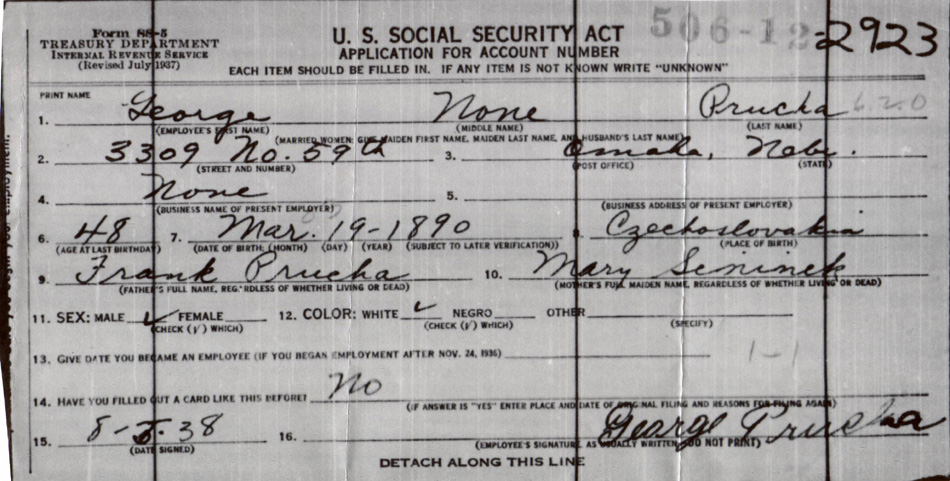 Form SS-5
TREASURY DEPARTMENT
INTERNAL REVENUE SERVICE
(Revised July 1937)
U. S. SOCIAL SECURITY ACT
APPLICATION FOR ACCOUNT NUMBER
EACH ITEM SHOULD BE FILLED IN. IF ANY ITEM IS NOT KNOWN WRITE "UNKNOWN"
506-12-2923
PRINT NAME
1. George None Prucha 620
(EMPLOYEE'S FIRST NAME) (MIDDLE NAME) (LAST NAME)
(MARRIED WOMEN: GIVE MAIDEN FIRST NAME, MAIDEN LAST NAME, AND HUSBAND'S LAST NAME)
2. 3309 No. 59th 3. Omaha, Nebr.
(STREET AND NUMBER) (POST OFFICE) (STATE)
4. None 5.
(BUSINESS NAME OF PRESENT EMPLOYER) (BUSINESS ADDRESS OF PRESENT EMPLOYER)
6. 48 7. Mar. 19-1890 8. Czechoslovakia
(AGE AT LAST BIRTHDAY) (DATE OF BIRTH: (MONTH) (DAY) (YEAR) (SUBJECT TO LATER VERIFICATION)) (PLACE OF BIRTH)
9. Frank Prucha 10. Mary
(FATHER'S FULL NAME, REGARDLESS OF WHETHER LIVING OR DEAD) (MOTHER'S FULL MAIDEN NAME, REGARDLESS OF WHETHER LIVING OR DEAD)
11. SEX: MALE ✓ FEMALE 12. COLOR: WHITE ✓ NEGRO OTHER
(CHECK (√) WHICH) (CHECK (√) WHICH) (SPECIFY)
13. GIVE DATE YOU BECAME AN EMPLOYEE (IF YOU BEGAN EMPLOYMENT AFTER NOV. 24, 1936) 1-1
14. HAVE YOU FILLED OUT A CARD LIKE THIS BEFORE? No
(IF ANSWER IS "YES" ENTER PLACE AND DATE OF ORIGINAL FILING AND REASONS FOR FILING AGAIN)
15. 8-5-38 16. George Prucha
(DATE SIGNED) (EMPLOYEE'S SIGNATURE, AS USUALLY WRITTEN. DO NOT PRINT)
DETACH ALONG THIS LINE